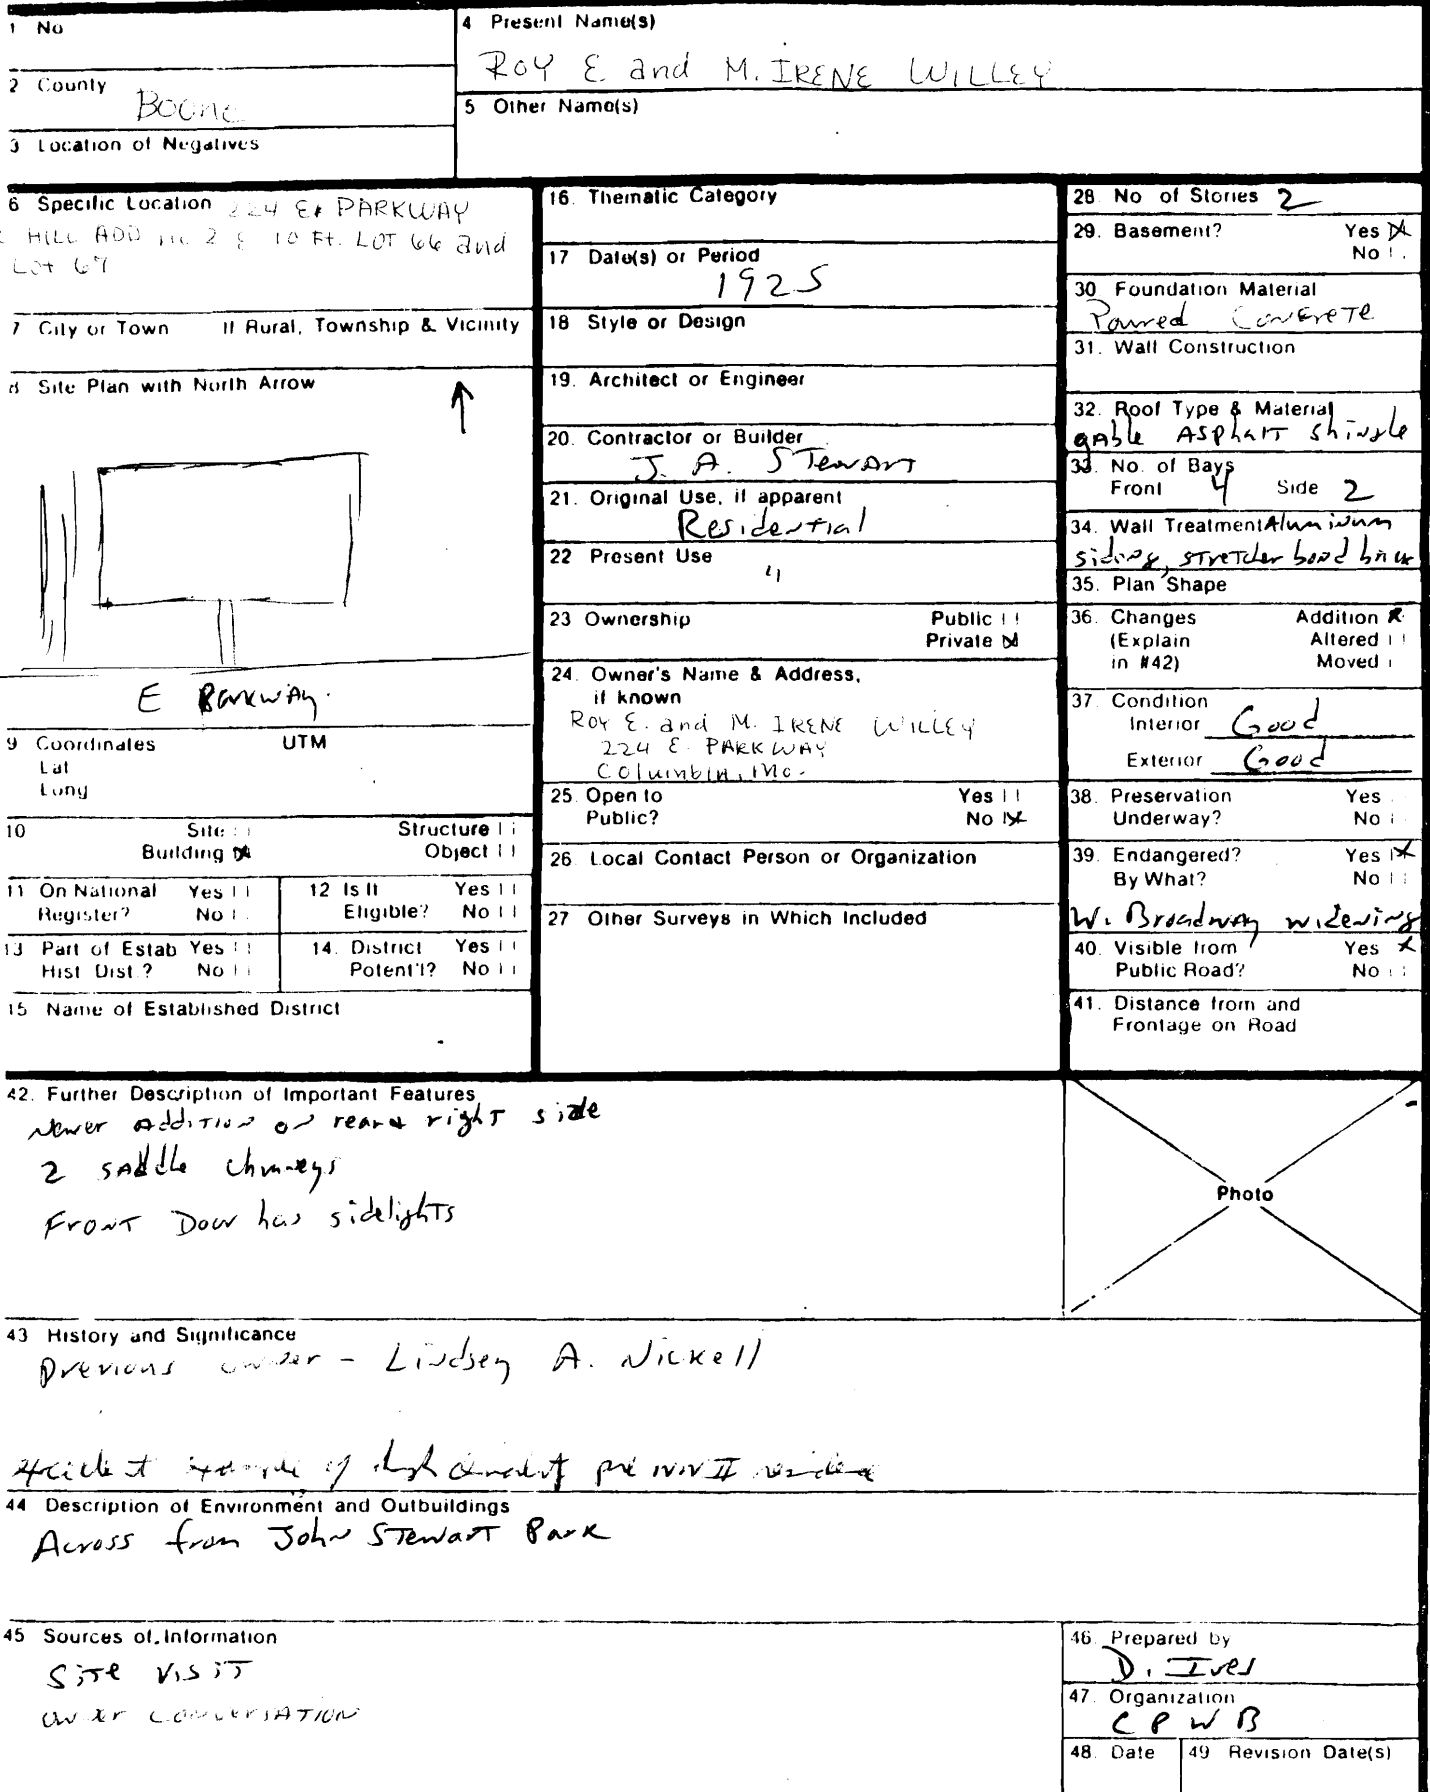 1 No
4 Present Name(s)
ROY E. and M. IRENE WILLEY
2 County
Boone
5 Other Name(s)
3 Location of Negatives
6 Specific Location 224 E. PARKWAY
HILL ADD no. 2 E 10 Ft. LOT 66 and
Lot 67
7 City or Town If Rural, Township & Vicinity
8 Site Plan with North Arrow
E Parkway.
9 Coordinates UTM
Lat
Long
10 Site
Structure
Building
Object
11 On National Register? Yes
No
12 Is It Eligible? Yes
No
13 Part of Estab Hist Dist.? Yes
No
14. District Potent'l? Yes
No
15 Name of Established District
16. Thematic Category
17 Date(s) or Period
1925
18 Style or Design
19. Architect or Engineer
20. Contractor or Builder
J. A. Stewart
21. Original Use, if apparent
Residential
22 Present Use
"
23 Ownership Public
Private
24. Owner's Name & Address,
if known
Roy E. and M. IRENE WILLEY
224 E. PARKWAY
Columbia, Mo.
25. Open to Yes
Public? No
26. Local Contact Person or Organization
27 Other Surveys in Which Included
28. No of Stories 2
29. Basement? Yes
No
30 Foundation Material
Poured Concrete
31. Wall Construction
32. Roof Type & Material
gable Asphalt shingle
33. No. of Bays
Front 4 Side 2
34. Wall Treatment Aluminum
siding, stretcher bond brick
35. Plan Shape
36. Changes Addition
(Explain Altered
in #42) Moved
37. Condition
Interior Good
Exterior Good
38. Preservation Yes
Underway? No
39. Endangered? Yes
By What? No
W. Broadway widening
40. Visible from Yes
Public Road? No
41. Distance from and
Frontage on Road
42. Further Description of Important Features
Newer Addition on rear & right side
2 saddle chimneys
Front Door has sidelights
Photo
43 History and Significance
Previous owner - Lindsey A. Nickell
Excellent example of high quality pre WW II residence
44 Description of Environment and Outbuildings
Across from John Stewart Park
45 Sources of Information
Site visit
owner conversation
46. Prepared by
D. Ives
47. Organization
CPWB
48. Date
49 Revision Date(s)